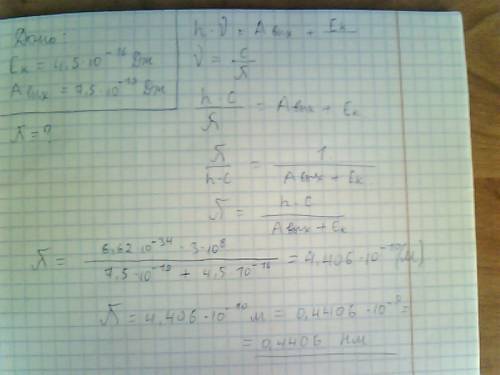 Дано:
Eк = 4,5·10⁻¹⁶ Дж
Aвых = 7,5·10⁻¹⁹ Дж
λ = ?
h·ν = Aвых + Eк
ν = c/λ
h·c/λ = Aвых + Eк
λ/h·c = 1/Aвых + Eк
λ = h·c/Aвых + Eк
λ = 6,62·10⁻³⁴·3·10⁸/7,5·10⁻¹⁹ + 4,5·10⁻¹⁶ = 4,406·10⁻¹⁰(м)
λ = 4,406·10⁻¹⁰ м = 0,4406·10⁻⁹ =
= 0,4406 нм